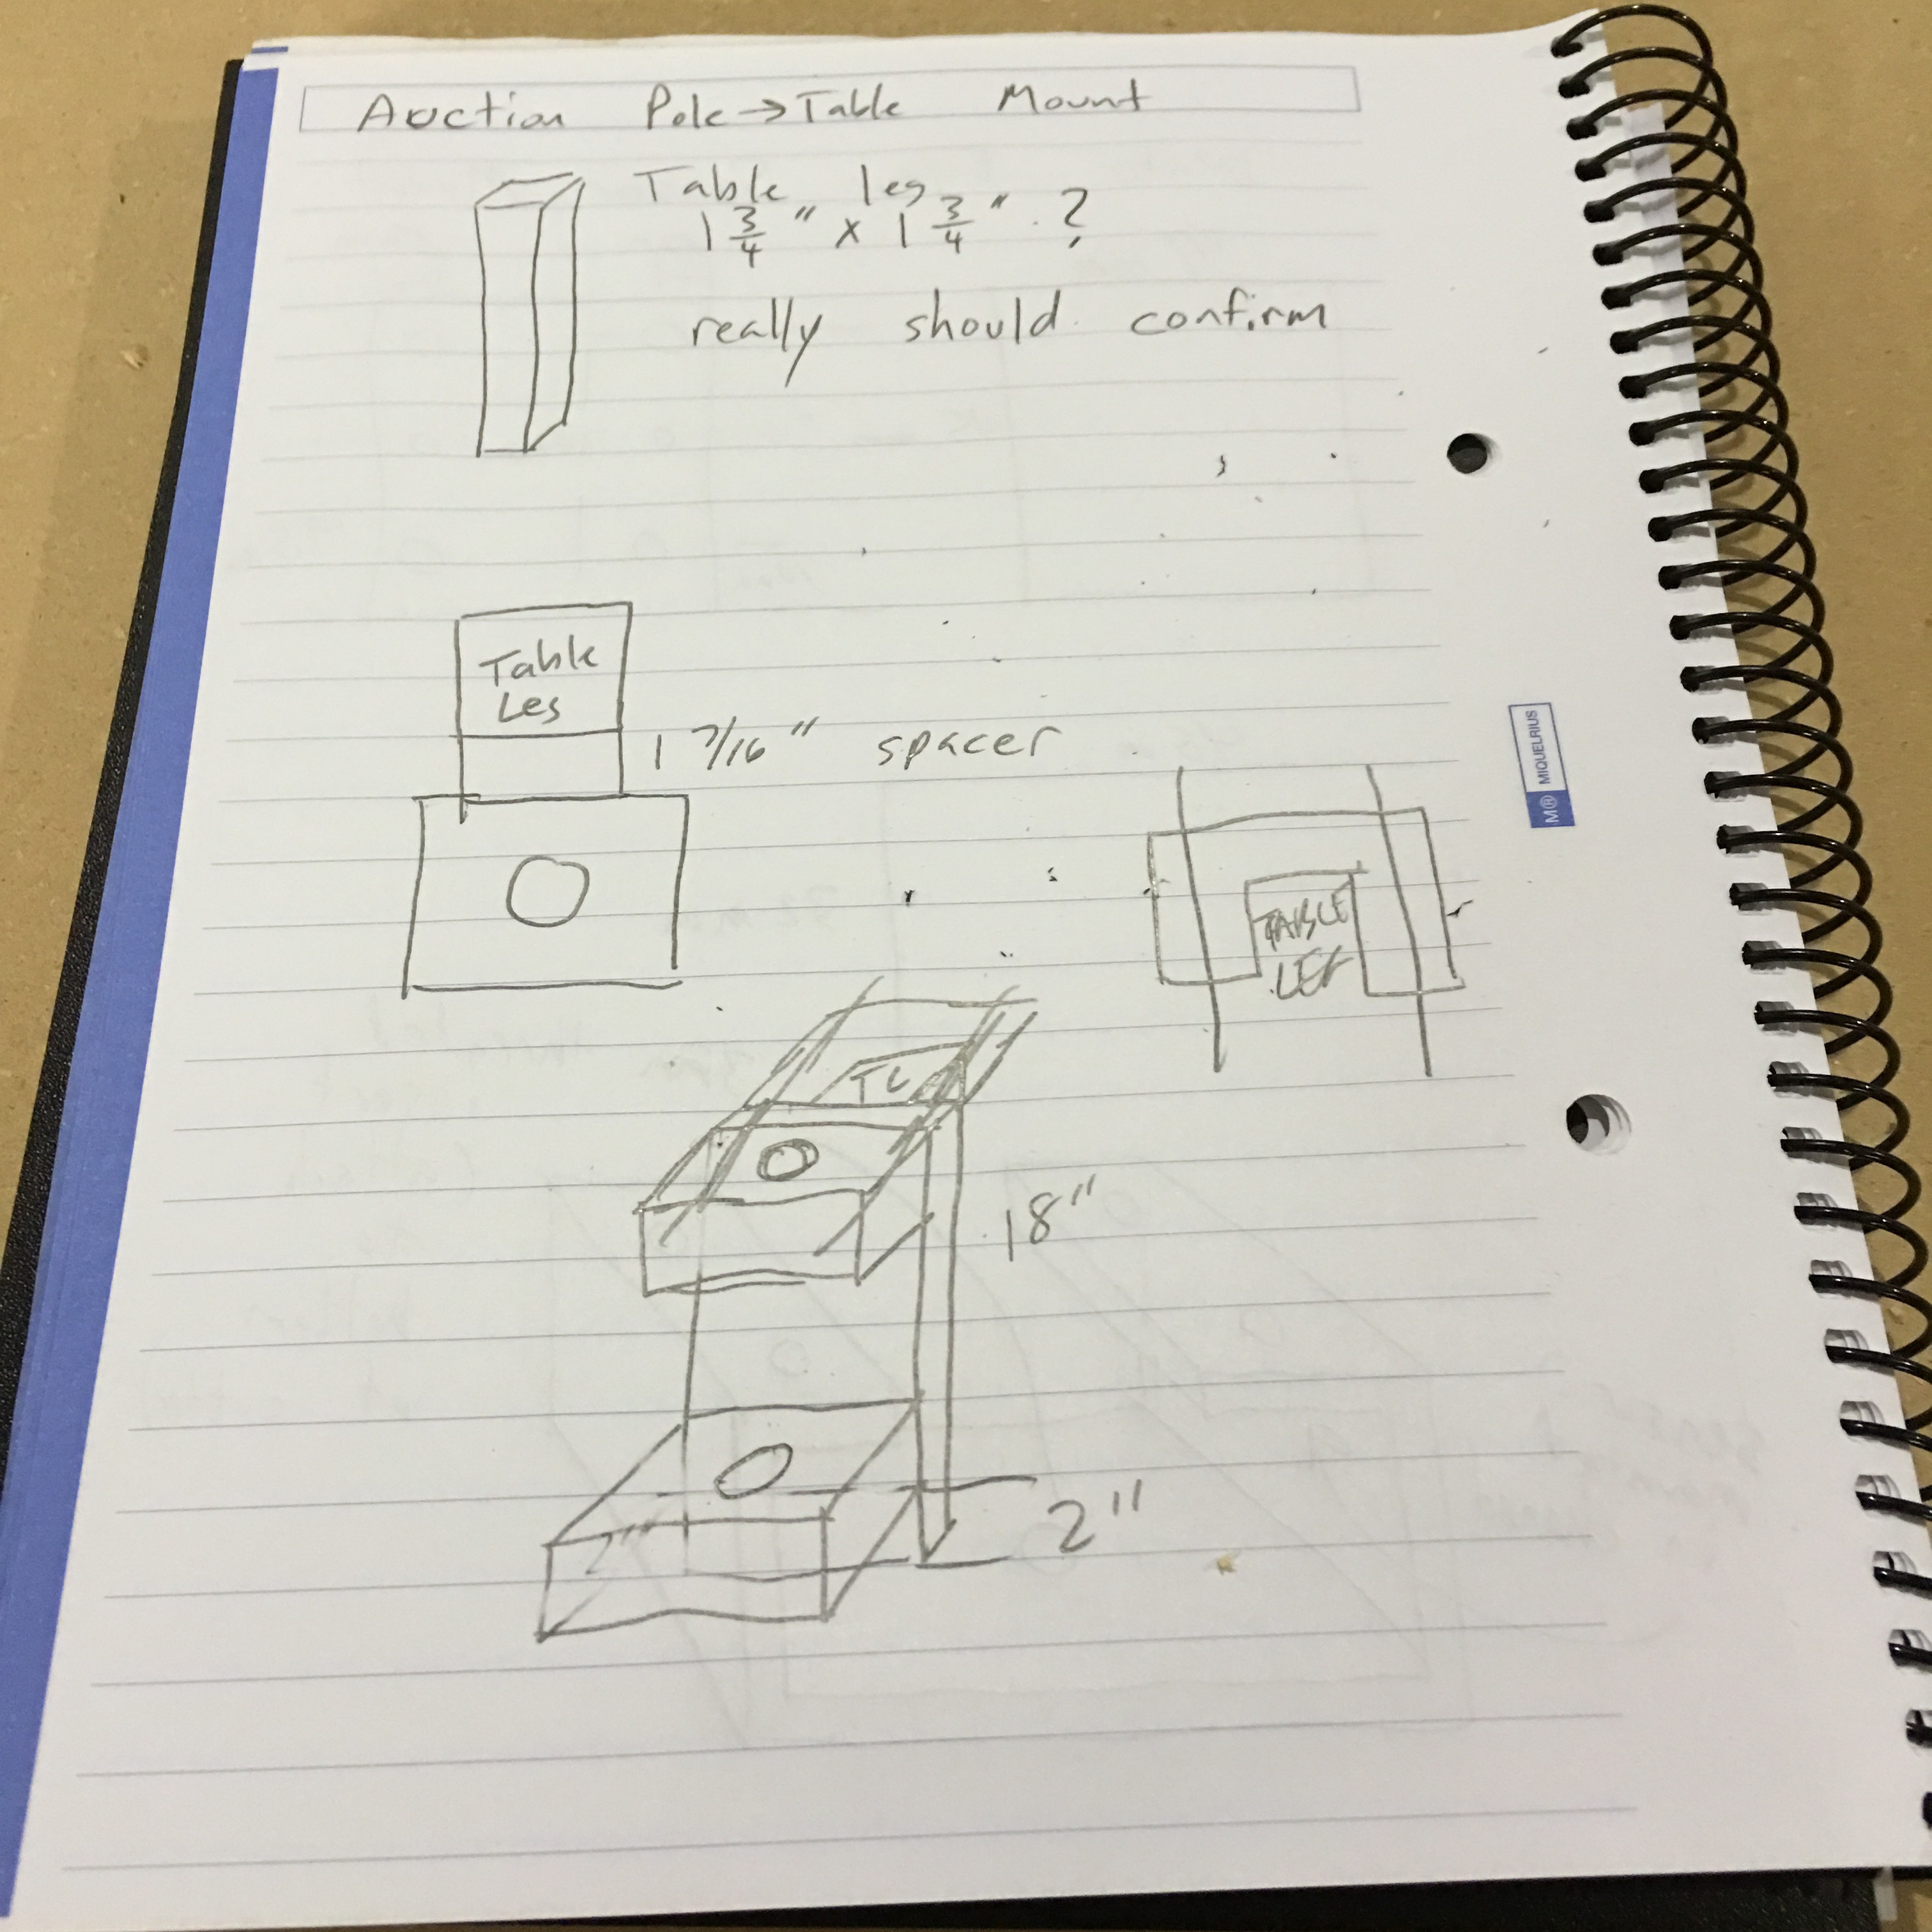 Auction Pole → Table Mount
Table leg
1 3/4" x 1 3/4" ?
really should confirm
Table
Leg
1 7/16" spacer
M® MIQUELRIUS
TABLE
LEG
TL
18"
2"
2"